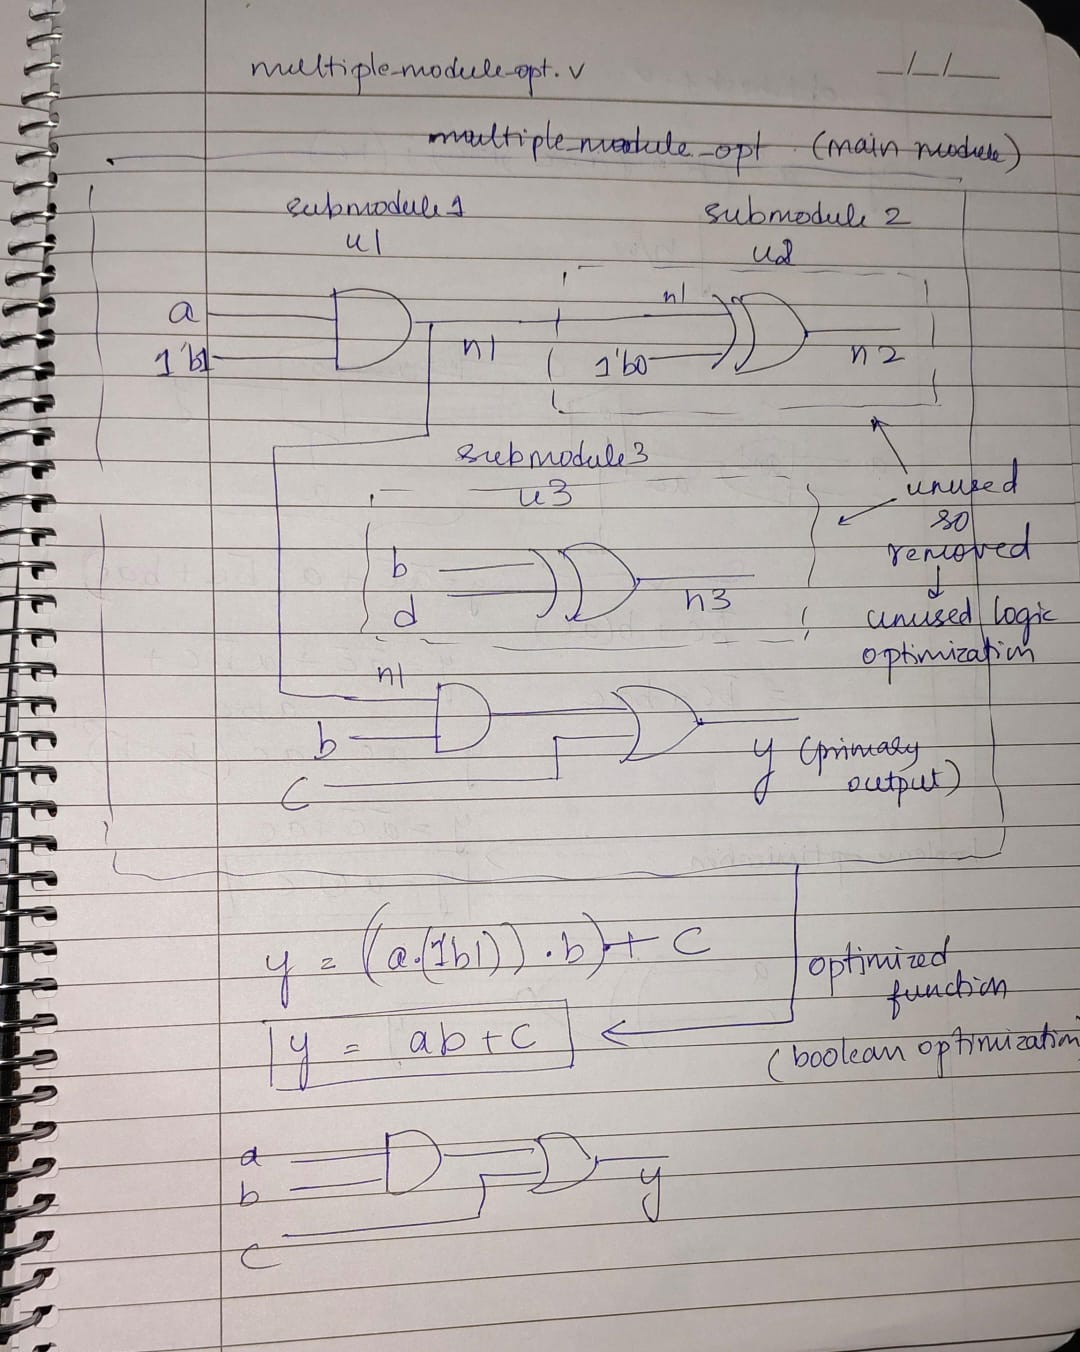 multiple_module_opt.v
_/_/__
multiple_module_opt (main module)
submodule 1
u1
submodule 2
u2
a
1'b1
n1
n1
1'b0
n2
submodule3
u3
b
d
n3
unused
so
removed
unused logic
optimization
n1
b
c
y (primary
output)
y = ((a.(1b1)).b)+ c
y = ab + c
optimized
function
(boolean optimization
a
b
c
y